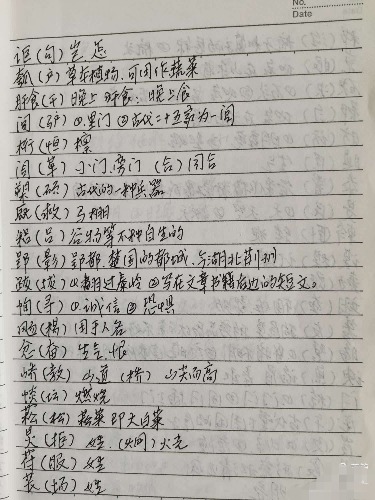 No.
Date
讵(句)岂,怎
瓠(户)草本植物,可用作蔬菜
旰食(干)晚上 旰食:晚上食
闾(驴)①里门 ②古代二十五家为一闾
桁(恒)檩
阁(革)小门,旁门 (合)闺台
槊(硕)古代的一种兵器
厩(救)马棚
稆(吕)谷物等不种自生的
郢(影)郢都 楚国的都城,今湖北荆州
跋(拔)①翻过 ②写在文章书籍后边的短文。
恂(寻)①诚信 ②恐惧
(杨)用于人名
忿(奋)生气,恨
峤(教)山道 (桥)山尖而高
燃烧
菘(松)菘菜 即大白菜
炅(桂)姓. (炯)火光
苻(服)姓
苌(场)姓